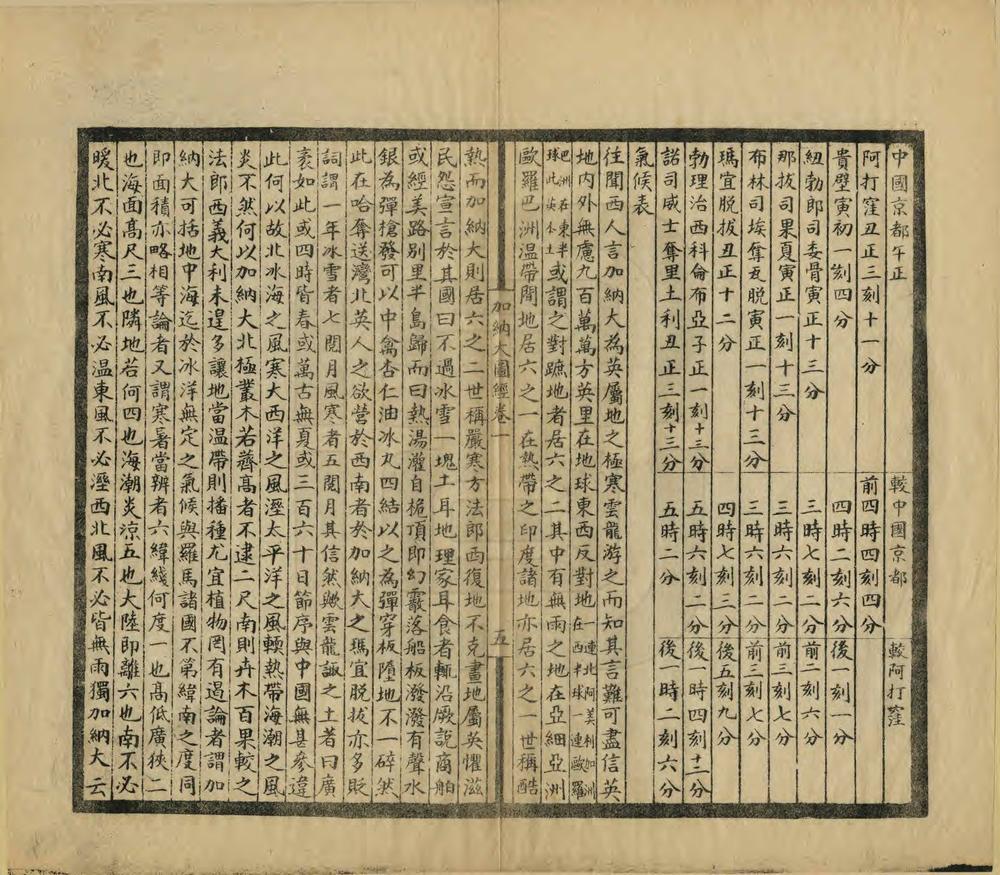 中國京都午正 較中國京都 較阿打窪
阿打窪丑正三刻十一分 前四時四刻四分
貴壁寅初一刻四分 四時二刻六分 後一刻一分
紐勃郎司委骨寅正十三分 三時七刻二分 前二刻六分
那拔司果夏寅正一刻十三分 三時六刻二分 前三刻七分
布林司埃奪瓦脫寅正一刻十三分 三時六刻二分 前三刻七分
瑪宜脫拔丑正十二分 四時七刻三分 後五刻九分
勃理治西科倫布亞子正一刻十三分 五時六刻二分 後一時四刻十二分
諾司威士奪里土利丑正三刻十三分 五時二分 後一時二刻六分
氣候表
往聞西人言加納大為英屬地之極寒雲龍游之而知其言難可盡信英
地內外無慮九百萬萬方英里在地球東西反對地一在西半球一連歐羅連北阿美利加洲
巴洲在東半球此英本土或謂之對蹠地者居六之二其中有無雨之地在亞細亞洲
歐羅巴洲溫帶間地居六之一在熱帶之印度諸地亦居六之一世稱酷
加納大圖經卷一 五
熱而加納大則居六之二世稱嚴寒方法郎西復地不克畫地屬英懼滋
民怨宣言於其國曰不過冰雪一塊土耳地理家耳食者輒沿厥說商舶
或經美路別里半島歸而曰熱湯灌自桅頂即幻霰落船板潑潑有聲水
銀為彈槍發可以中禽杏仁油冰丸四結以之為彈穿板墮地不一碎然
此在哈奪送灣北英人之欲營於西南者於加納大之瑪宜脫拔亦多貶
詞謂一年冰雪者七閱月風寒者五閱月其信然歟雲龍諏之土著曰廣
袤如此或四時皆春或萬古無夏或三百六十日節序與中國無甚參違
此何以故北冰海之風寒大西洋之風溼太平洋之風輭熱帶海潮之風
炎不然何以加納大北極叢木若薺高者不逮二尺南則卉木百果較之
法郎西義大利未遑多讓地當溫帶則播種尤宜植物罔有遏論者謂加
納大可括地中海迄於冰洋無定之氣候與羅馬諸國不第緯南之度同
即面積亦略相等論者又謂寒暑當辨者六緯綫何度一也高低廣狹二
也海面高尺三也隣地若何四也海潮炎涼五也大陸即離六也南不必
暖北不必寒南風不必溫東風不必溼西北風不必皆無雨獨加納大云